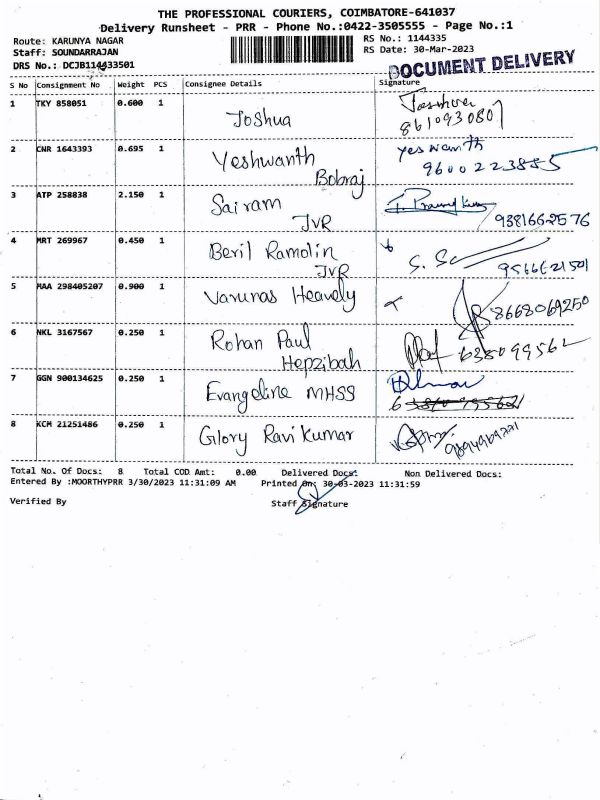 THE PROFESSIONAL COURIERS, COIMBATORE-641037
Delivery Runsheet - PRR - Phone No.:0422-3505555 - Page No.:1
Route: KARUNYA NAGAR
Staff: SOUNDARRAJAN
DRS No.: DCJB114433501
RS No.: 1144335
RS Date: 30-Mar-2023
DOCUMENT DELIVERY
S No Consignment No Weight PCS Consignee Details Signature
1 TKY 858051 0.600 1 Joshua
8610930807
2 CNR 1643393 0.695 1 Yeshwanth Yeswanth
Bobraj 9600223885
3 ATP 258838 2.150 1 Sairam
JVR 9381662576
4 MRT 269967 0.450 1 Beril Ramolin
JVR 9566621501
5 MAA 298405207 0.900 1 Varunas Heavely 8668069250
6 NKL 3167567 0.250 1 Rohan Paul
Hepzibah 638099562
7 GGN 900134625 0.250 1 Evangeline MHSS
8 KCM 21251486 0.250 1 Glory Ravi Kumar
Total No. Of Docs: 8 Total COD Amt: 0.00 Delivered Docs: Non Delivered Docs:
Entered By :MOORTHYPRR 3/30/2023 11:31:09 AM Printed On: 30-03-2023 11:31:59
Verified By Staff Signature